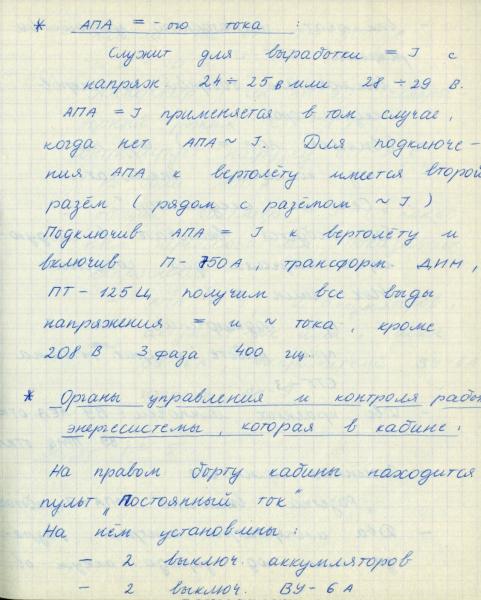 * АПА = -ого тока:
Служит для выработки = I с
напряж 24 ÷ 25 в или 28 ÷ 29 в.
АПА = I применяется в том случае,
когда нет АПА ~ I. Для подключе-
ния АПА к вертолёту имеется второй
разём (рядом с разёмом ~ I)
Подключив АПА = I к вертолёту и
включив П-750А, трансформ ДИМ,
ПТ-125Ц получим все выды
напряжения = и ~ тока, кроме
208 В 3 фаза 400 гц.
* Органы управления и контроля рабо
энергсистемы, которая в кабине:
На правом борту кабины находится
пульт „Постоянный ток"
На нём установлены:
- 2 выключ. аккумляторов
- 2 выключ. ВУ-6А